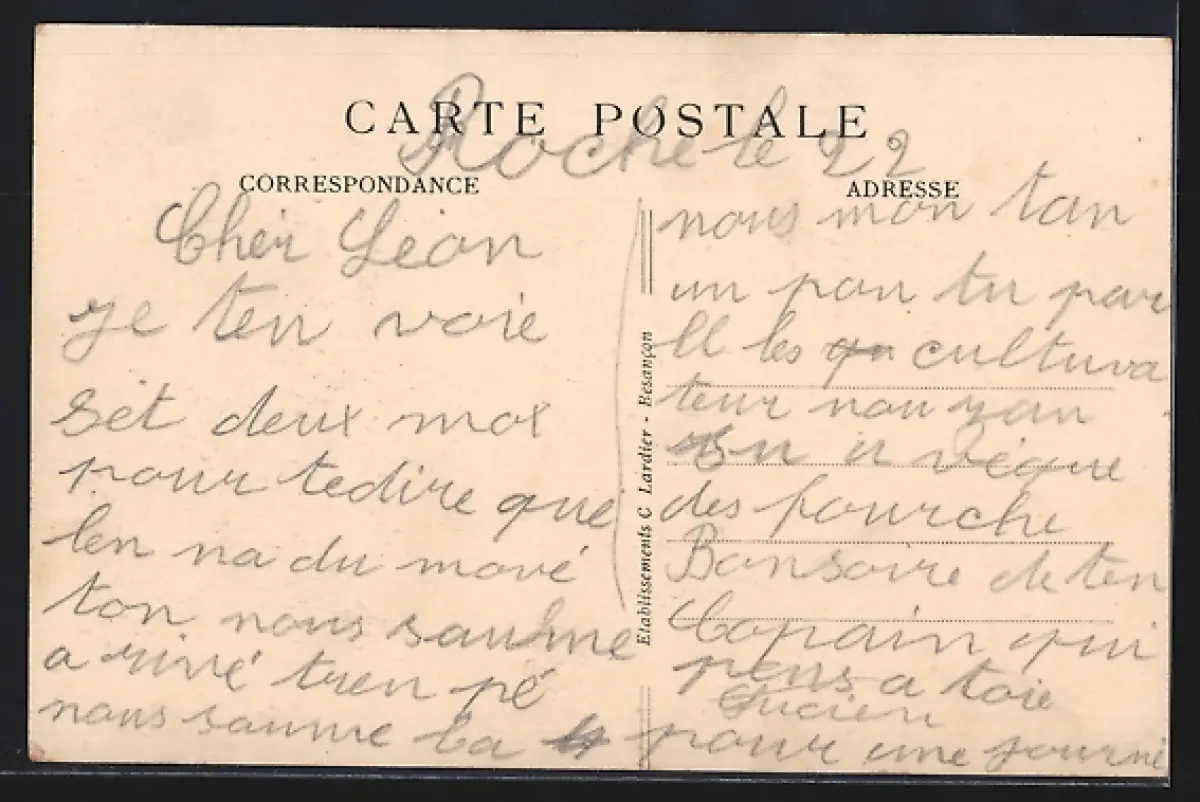 CARTE POSTALE
Roche le 22
CORRESPONDANCE
Cher Léon
je ten voie
set deux mot
pour tedire que
len na du mové
ton nous saume
a rivé tren pé
nous saume la
ADRESSE
nous mon tan
un pon tu par
ll les cultuva
teur nou yan
en a vêque
des fourche
Bonsoire de ten
Copain qui
pens a toie
Lucien
pour une journé
Etablissements C Lardier - Besançon